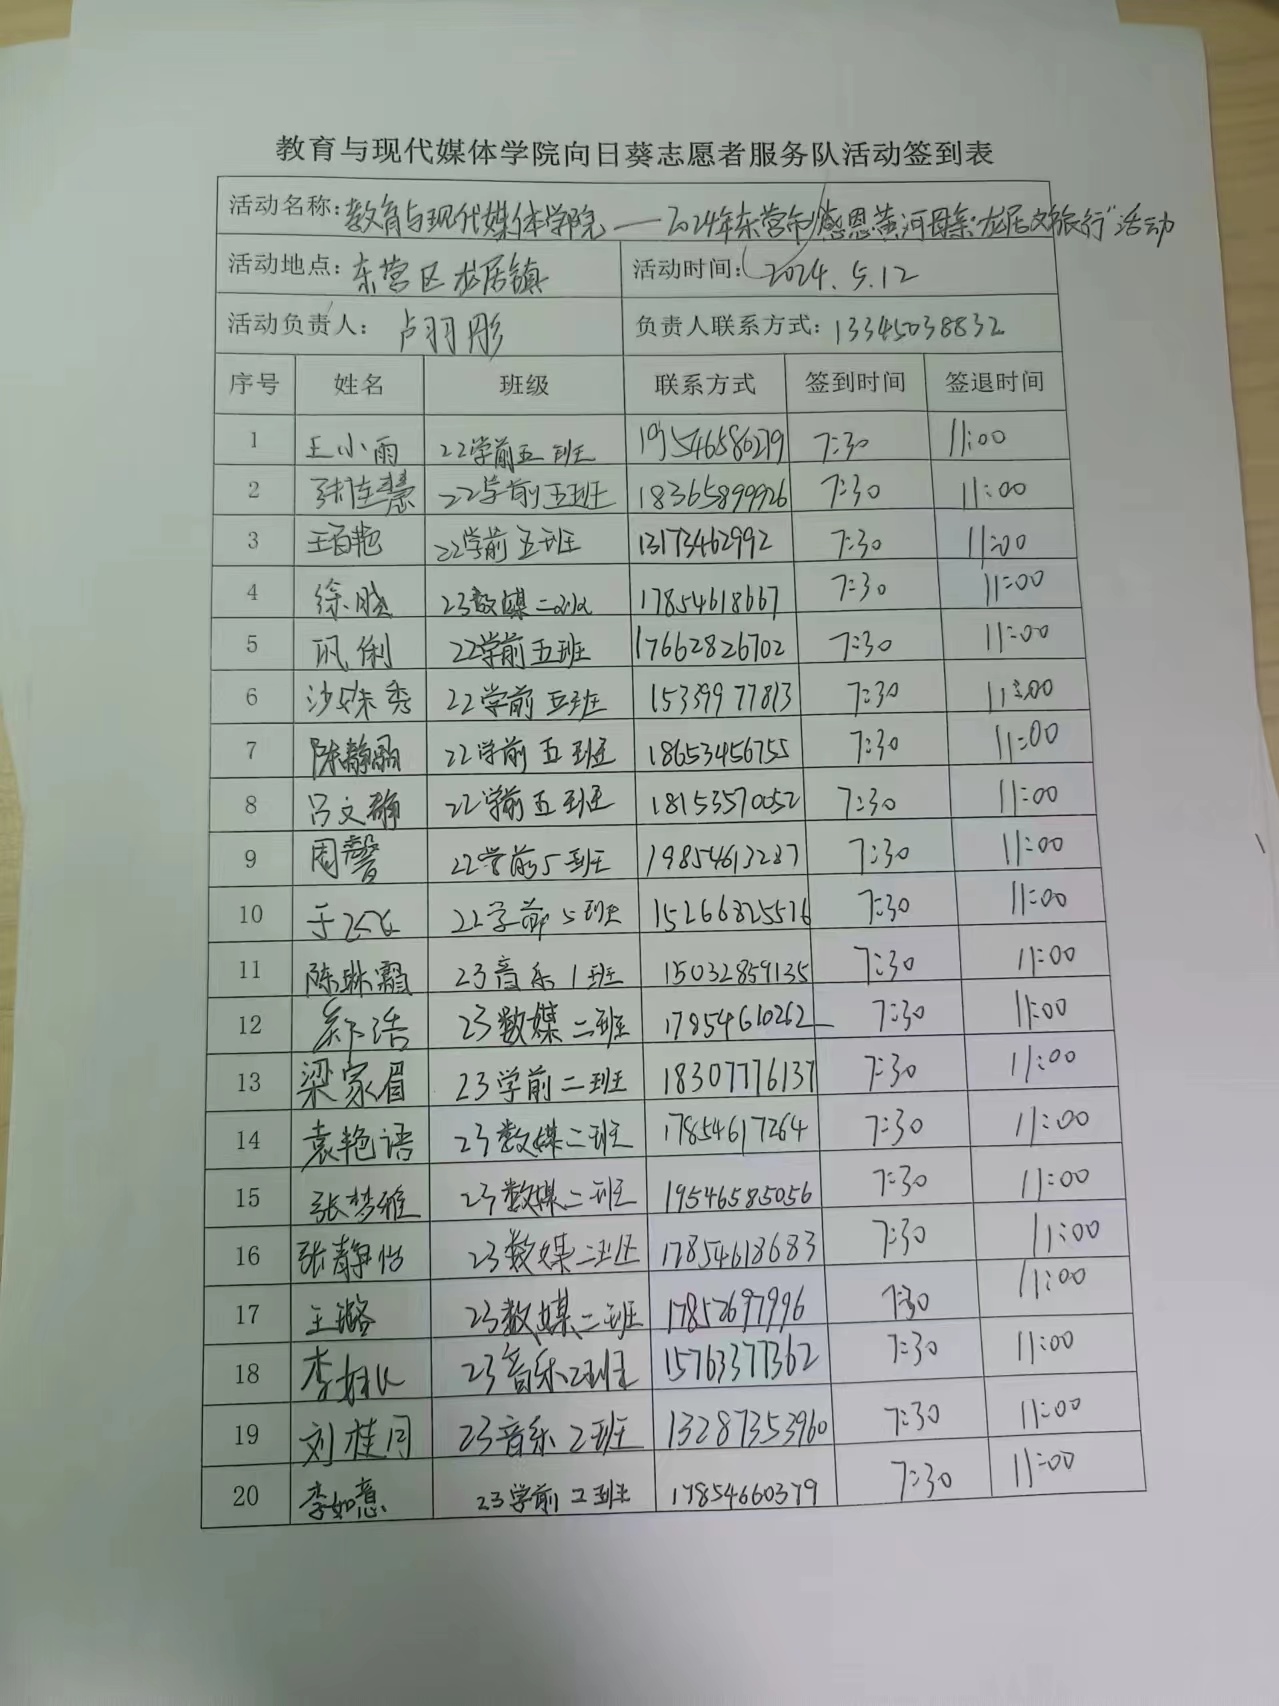 教育与现代媒体学院向日葵志愿者服务队活动签到表
活动名称:教育与现代媒体学院——2024年东营市"感恩黄河母亲·龙居文旅行"活动
活动地点:东营区龙居镇 活动时间:2024.5.12
活动负责人:卢羽彤 负责人联系方式:13345038832
序号 姓名 班级 联系方式 签到时间 签退时间
1 王小雨 22学前五班 19546586279 7:30 11:00
2 张佳慧 22学前五班 18365899926 7:30 11:00
3 王百艳 22学前五班 13173462992 7:30 11:00
4 徐晓 23数媒二班 17854618667 7:30 11:00
5 巩俐 22学前五班 17662826702 7:30 11:00
6 沙姝秀 22学前五班 15339977813 7:30 11:00
7 陈静 22学前五班 18653456755 7:30 11:00
8 吕文静 22学前五班 18153570052 7:30 11:00
9 周馨 22学前5班 19854613287 7:30 11:00
10 于 22学前5班 15266825516 7:30 11:00
11 陈琳霜 23音乐1班 15032859135 7:30 11:00
12 浩 23数媒二班 17854610262 7:30 11:00
13 梁家眉 23学前二班 18307776137 7:30 11:00
14 袁艳语 23数媒二班 17854617264 7:30 11:00
15 张梦雅 23数媒二班 19546585056 7:30 11:00
16 张静怡 23数媒二班 17854618683 7:30 11:00
17 王璐 23数媒二班 17852697996 7:30 11:00
18 李 23音乐2班 15763377362 7:30 11:00
19 刘桂月 23音乐2班 13287353960 7:30 11:00
20 李如意 23学前二班 17854660379 7:30 11:00